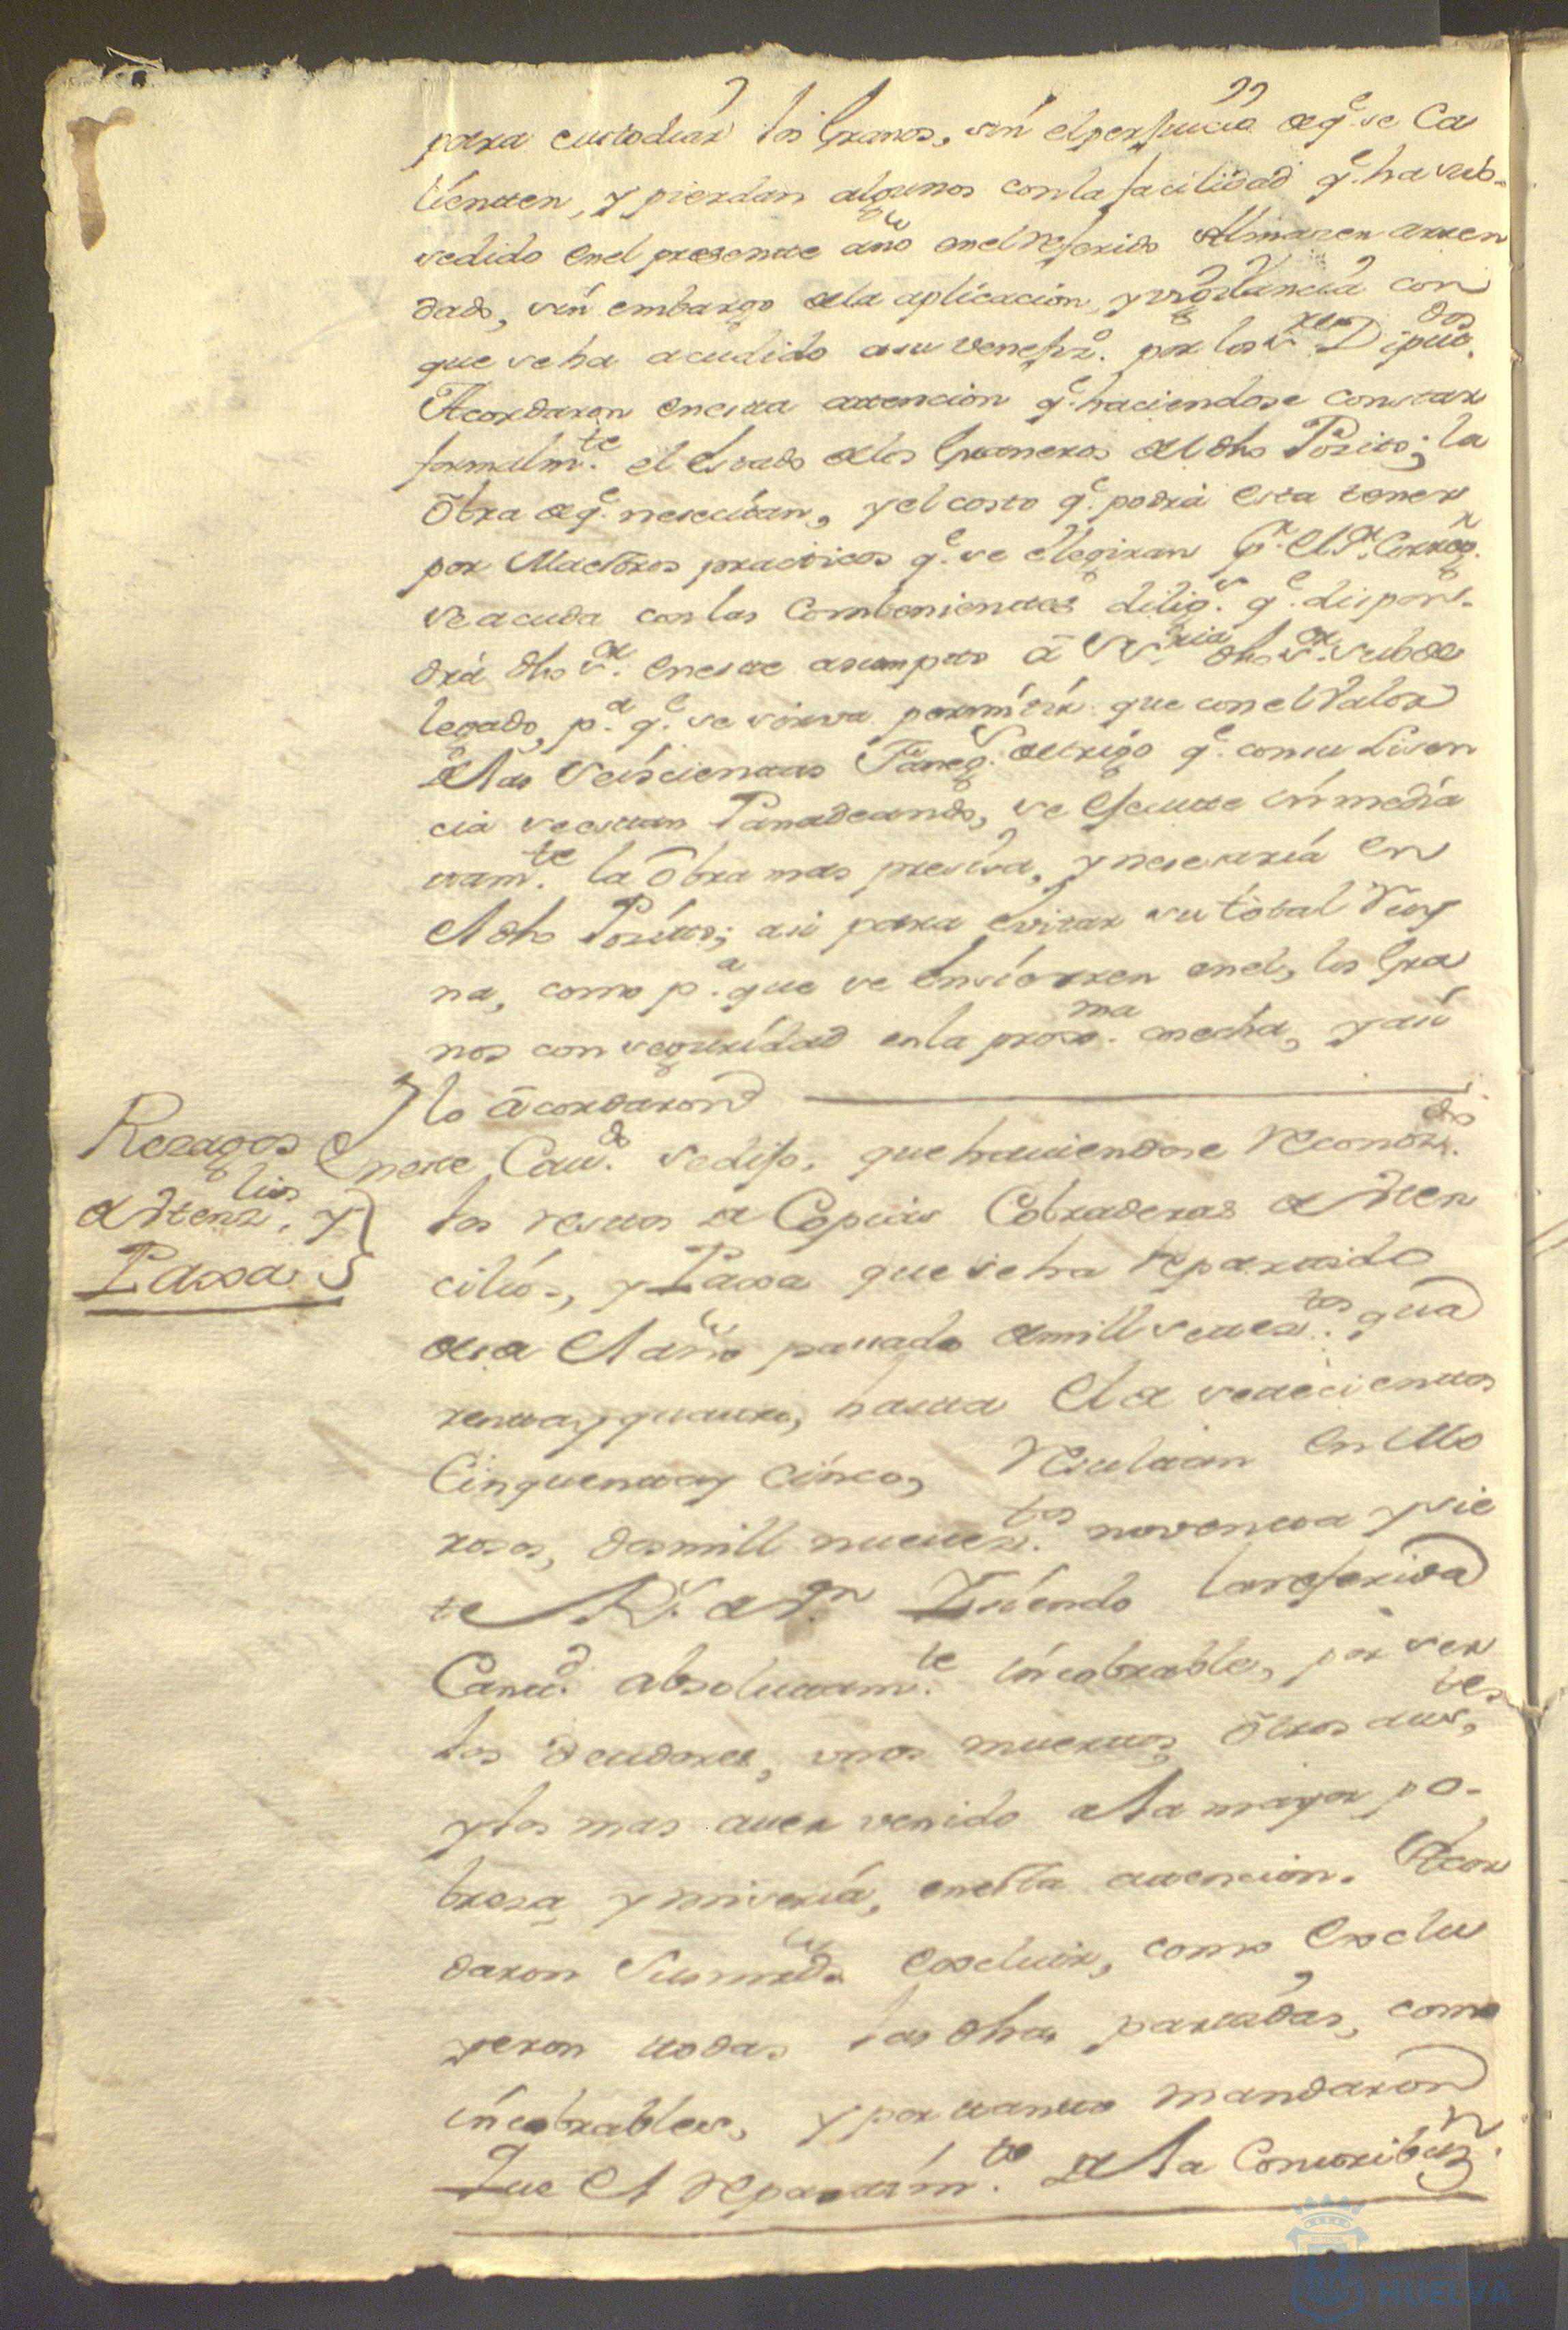 para custodiar los Granos, sin el perjuicio de q.e se Ca
lienten, y pierdan algunos con la facilidad q.e ha sub-
sedido en el presente año en el referido Almazen arren
dado, sin embargo de la aplicacion, y vigilancia con
que se ha acudido a su venefiz.o por los s.res Diput.dos
Acordaron en esta atencion q.e haciendose constar
formalm.te el estado de los Graneros del dho Posito; la
obra de q.e nesecitan, y el costo q.e podrá esta tener
por Maestros practicos q.e se elegiran p.r el S.r Correg.r
se acuda con las Combenientes dilig.s q.e dispon-
drá dho s.r en este asumpto â Su S.ria dho s.r subde
legado, p.a q.e se sirva permitir que con el Valor
de las Seiscientas Faneg.s de trigo q.e con su Lisen
cia se estan Panadeando, se Execute inmedia
tam.te la obra mas presisa, y nesesaria en
el dho Posito; asi para evitar su total Ruy
na, como p.a que se Ensierren en el, los Gra
nos con seguridad en la prox.ma cosecha, y asi
lo âcordaron
Rezagos
de Vtenz.lios y
Paxa
En este Cav.do se dijo, que haviendose reconoz.do
los restos de Copias Cobraderas de Vten
cilios, y Paxa que se ha repartido
desde el año passado de mill setez.tos qua
renta y quatro, hasta el de setecientos
Cinquenta y cinco, resultan en Mo
rosos, dos mill nuevez.tos noventa y sie
te R.s de v.n Y siendo la referida
Cant.d absolutam.te incobrable, por ser
los deudores, unos muertos, otros aus.tes
y los mas aver venido a la mayor po-
breza y miseria, en esta atencion. Acor
daron Sus mrds. Excluir, como Exclu
yeron todas las dhas partidas, como
incobrables, y por tanto mandaron
Que el repartim.to de la Contribuz.n
HUELVA